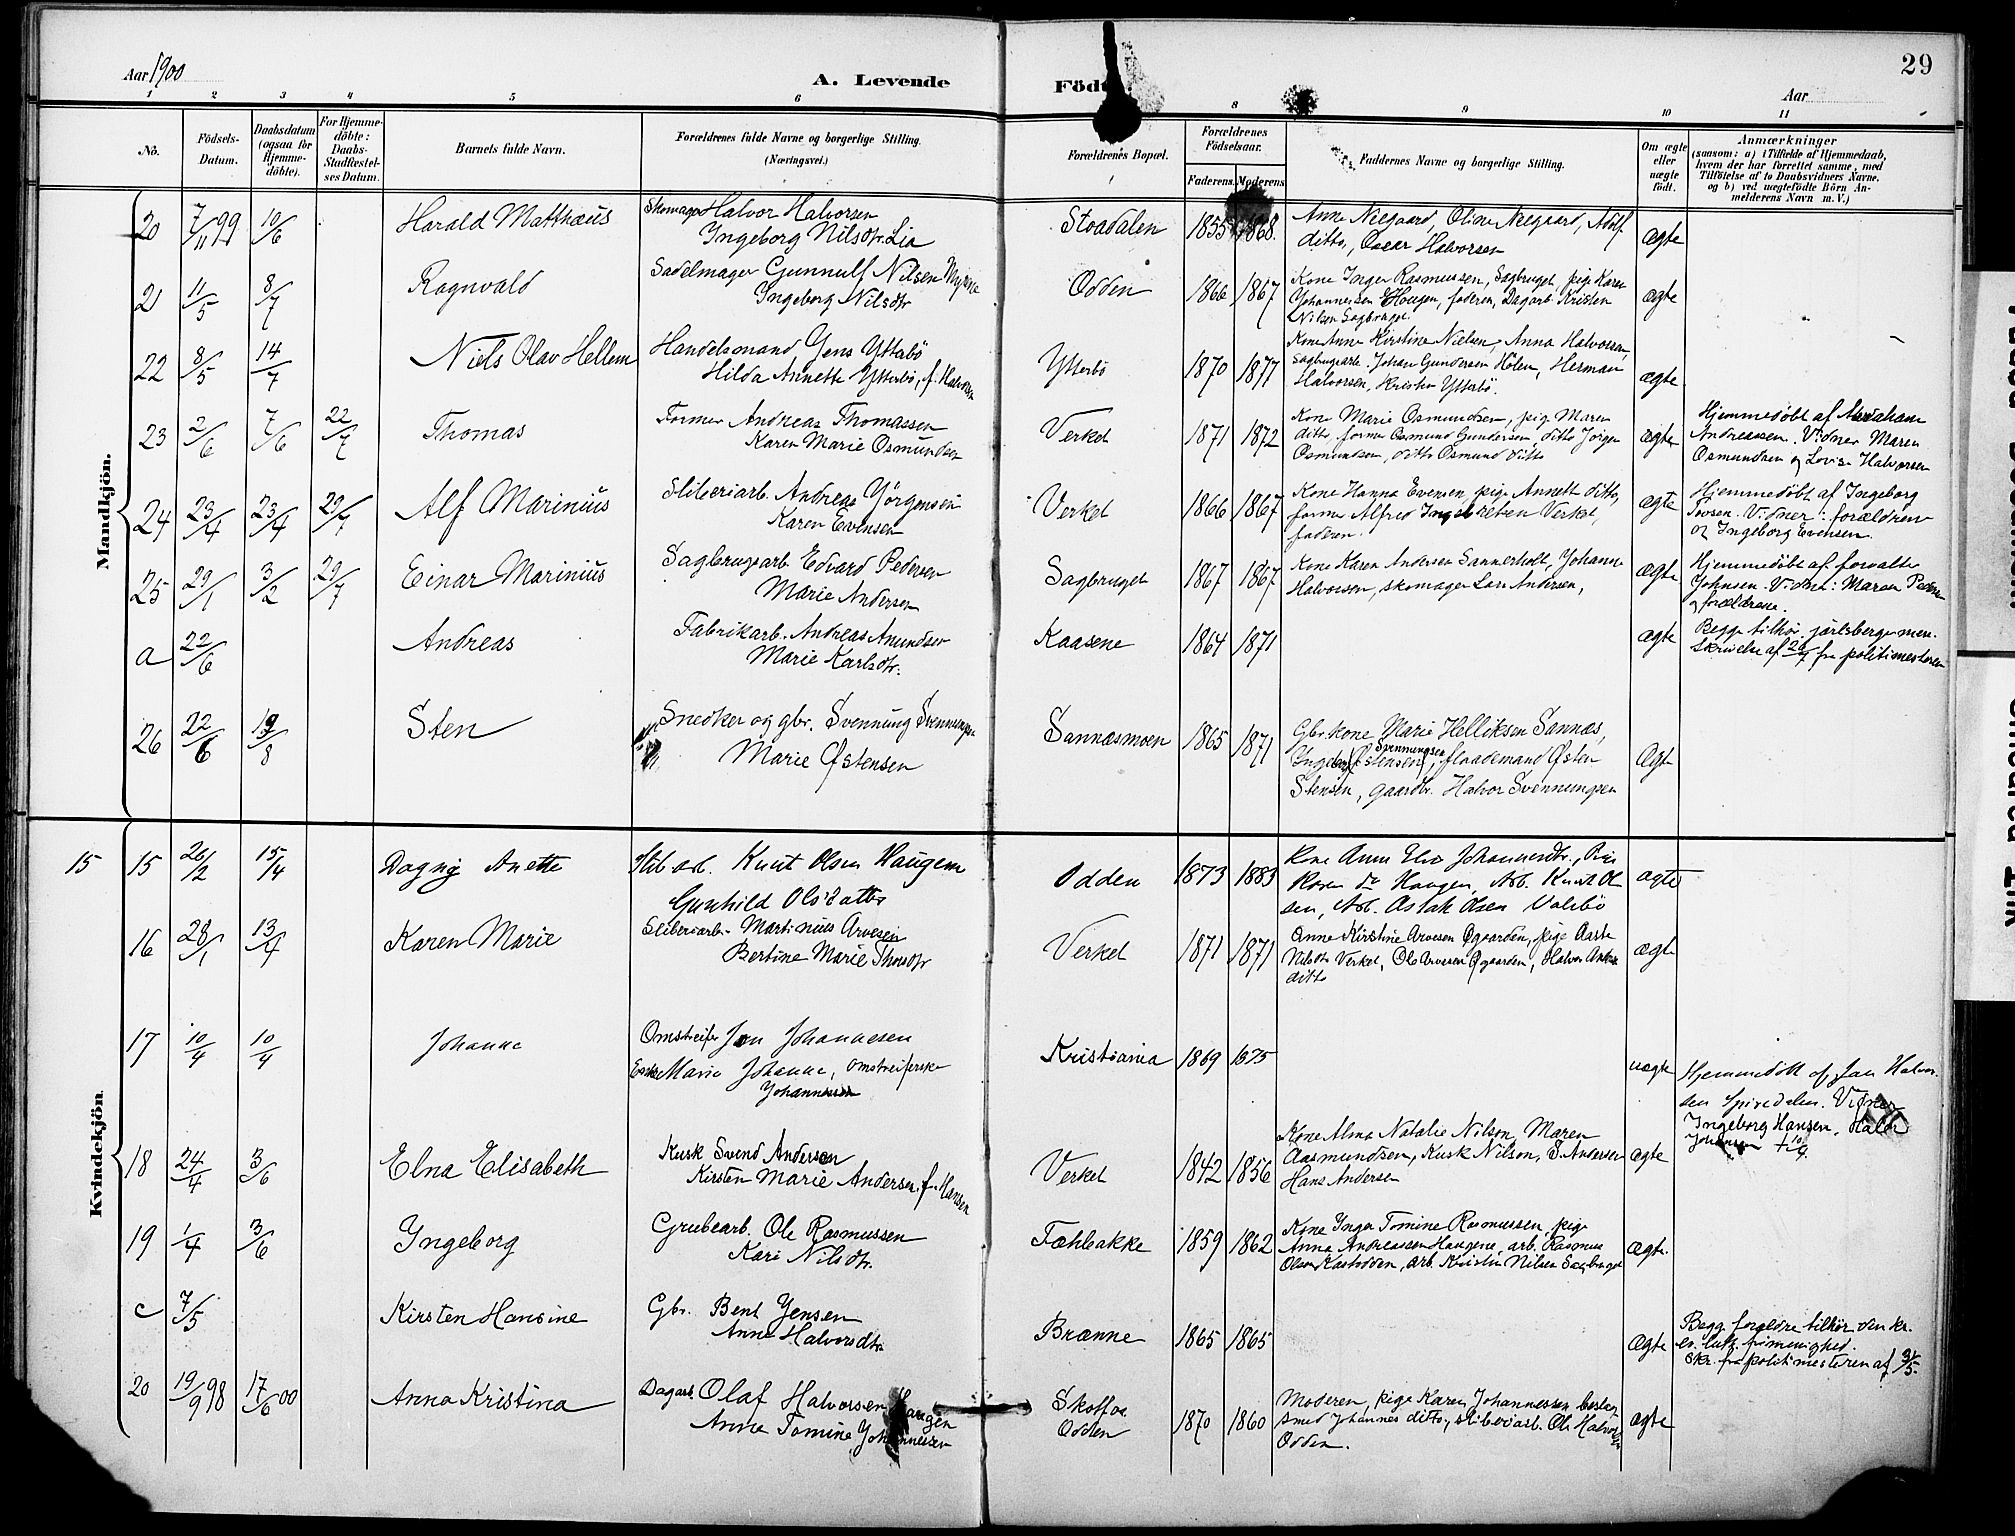 Aar 1900
A. Levende
Födte.
29
Aar
1 2 3 4 5 6 8 9 10 11
No.
Födsels-Datum.
Daabsdatum (ogsaa for Hjemmedöbte).
For Hjemmedöbte: Daabs-Stadfæstelses Datum.
Barnets fulde Navn.
Forældrenes fulde Navne og borgerlige Stilling. (Næringsvei.)
Forældrenes Bopæl.
Forældrenes Födselsaar.
Faderens. Moderens.
Faddernes Navne og borgerlige Stilling.
Om ægte eller uægte födt.
Anmærkninger
(saasom: a) i Tilfælde af Hjemmedaab, hvem der har forrettet samme, med Tilföielse af to Daabsvidners Navne, og b) ved uægtefödte Börn Anmelderens Navn m. V.)
Mandkjön.
20 7/11 99 10/6 Harald Matthæus
Skomager Halvor Halvorsen
Ingeborg Nilsdtr. Lia
Stoadalen 1855 1868.
Anne Næegaard, Oline Næegaard, Adolf
ditto, Oscar Halvorsen
ægte
21 11/5 8/7 Ragnvald
Sadelmager Gunnulf Nilsen Myrene
Ingeborg Nilsdtr
Odden 1866 1867
Kone Inger Rasmussen, Sagbruget, pige Karen
Johannesen Hougen, faderen, Dagarb. Kristen
Nilsen Sagbruget.
ægte
22 8/5 14/7 Niels Olav Hellem
Handelsmand Jens Ytterbö
Hilda Annette Ytterbö, f. Halvorsen
Ytterbö 1870 1877
Kone Anne Kirstine Nielsen, Anna Halvorsen,
Sagbrugsarb. Johan Gundersen Holen, Herman
Halvorsen, Kristen Ytterbö.
ægte
23 2/6 7/6 22/7 Thomas
Former Andreas Thomassen
Karen Marie Osmundsen
Verket 1871 1872
Kone Marie Osmundsen, pige Maren
ditto, former Osmund Gundersen, ditto Jörgen
Osmundsen, ditto Osmund ditto
ægte
Hjemmedöbt af Abraham
Andreassen. Vidner Maren
Osmundsen og Lovise Halvorsen
24 23/4 23/4 29/7 Alf Marinius
Sliberiarb. Andreas Jörgensen
Karen Evensen
Verket 1866 1867
Kone Hanna Evensen, pige Annett ditto,
former Alfred Ingebretsen Verket,
faderen.
ægte
Hjemmedöbt af Ingeborg
Tovsen. Vidner: forældrene
og Ingeborg Evensen.
25 29/1 3/2 29/7 Einar Marinius
Sagbrugsarb. Edvard Pedersen
Marie Andersen
Sagbruget 1867 1867
Kone Karen Andersen Sannerholt, Johanne
Halvorsen, skomager Lars Andersen,
ægte
Hjemmedöbt af forvalter
Johnsen. Vidner: Maren Pedersen
og forældrene.
a 22/6 Andreas
Fabrikarb. Andreas Amundsen
Marie Karlsdtr.
Kaasene 1864 1871
ægte
Begge tilhör jarlsbergermen.
Skrivelse af 20/7 fra politimesteren
26 22/6 19/8 Sten
Snedker og gbr. Svennung Svennungsen
Marie Østensen
Sannæsmoen 1865 1871
Gbr.kone Marie Helliksen Sannæs,
Ingeborg (Østensen) Svennungsen, flaademand Østen
Stensen, gaardbr. Halvor Svennungsen
Ægte
Kvindekjön.
15 15 26/2 15/4 Dagny Anette
Slib arb. Knut Olsen Haugene
Gunhild Olsdatter
Odden 1873 1883
Kone Anne Elise Johannesdtr., Pige
Karen do Haugen, Arb. Knut Ol
sen, Arb. Aslak Olsen Valebö
ægte
16 28/1 13/4 Karen Marie
Sliberiarb. Martinius Arvesen
Bertine Marie Thorsdtr
Verket 1871 1871
Anne Kirstine Arvesen Øgaarden, pige Aaste
Nilsdtr Verket, Ole Arvesen Øgaarden, Halvor
ditto
ægte
17 10/4 10/4 Johanne
Omstreifer Jon Johannesen
Enke Marie Johanne, omstreiferske
Johannesen
Kristiania 1869 1875
uægte
Hjemmedöbt af Jan Halvor-
sen Spiredalen. Vidner
Ingeborg Hansen, Halvor
Johansen + 10/4.
18 24/4 3/6 Elna Elisabeth
Kusk Svend Andersen
Kirsten Marie Andersen, f. Hansen
Verket 1842 1856
Kone Alma Natalie Nilson, Maren
Aasmundsen, Kusk Nilson, S. Andersen
Hans Andersen
ægte
19 1/4 3/6 Ingeborg
Grubearb. Ole Rasmussen
Kari Nilsdtr.
Fæhbakke 1859 1862
Kone Inger Tomine Rasmussen, pige
Anna Andreassen Haugene, arb. Rasmus
Olsen Kastodden, arb. Kristen Nilsen Sagbruget
Ægte.
c 7/5 Kirsten Hansine
Gbr. Bent Jensen
Anne Halvorsdtr.
Brænne 1865 1865
Ægte
Begge forældre tilhör den kr.
ev. luth. frimenighed.
Skr. fra politimesteren af 31/5.
20 19/9 98 17/6 00 Anna Kristina
Dagarb. Olaf Halvorsen Haugen
Anne Tomine Johannessen
Skotfos
Odden 1870 1860
Moderen, pige Karen Johannessen, beslag
smed Johannes ditto, sliberiarb. Ole Halvorsen
Odden.
ægte